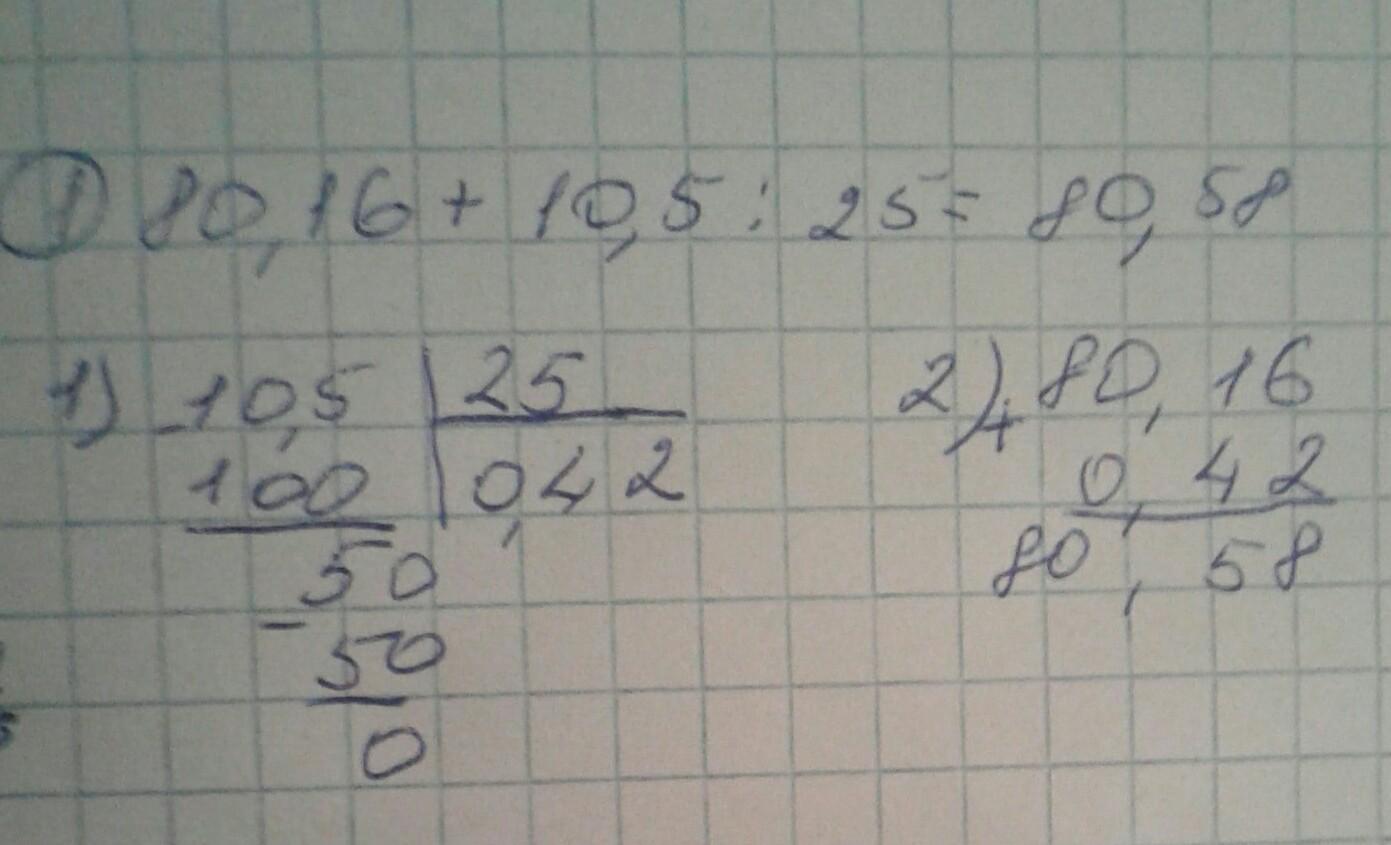 1 80,16 + 10,5 : 25 = 80,58
1) - 10,5 | 25
100 | 0,42
50
- 50
0
2) + 80,16
0,42
80,58